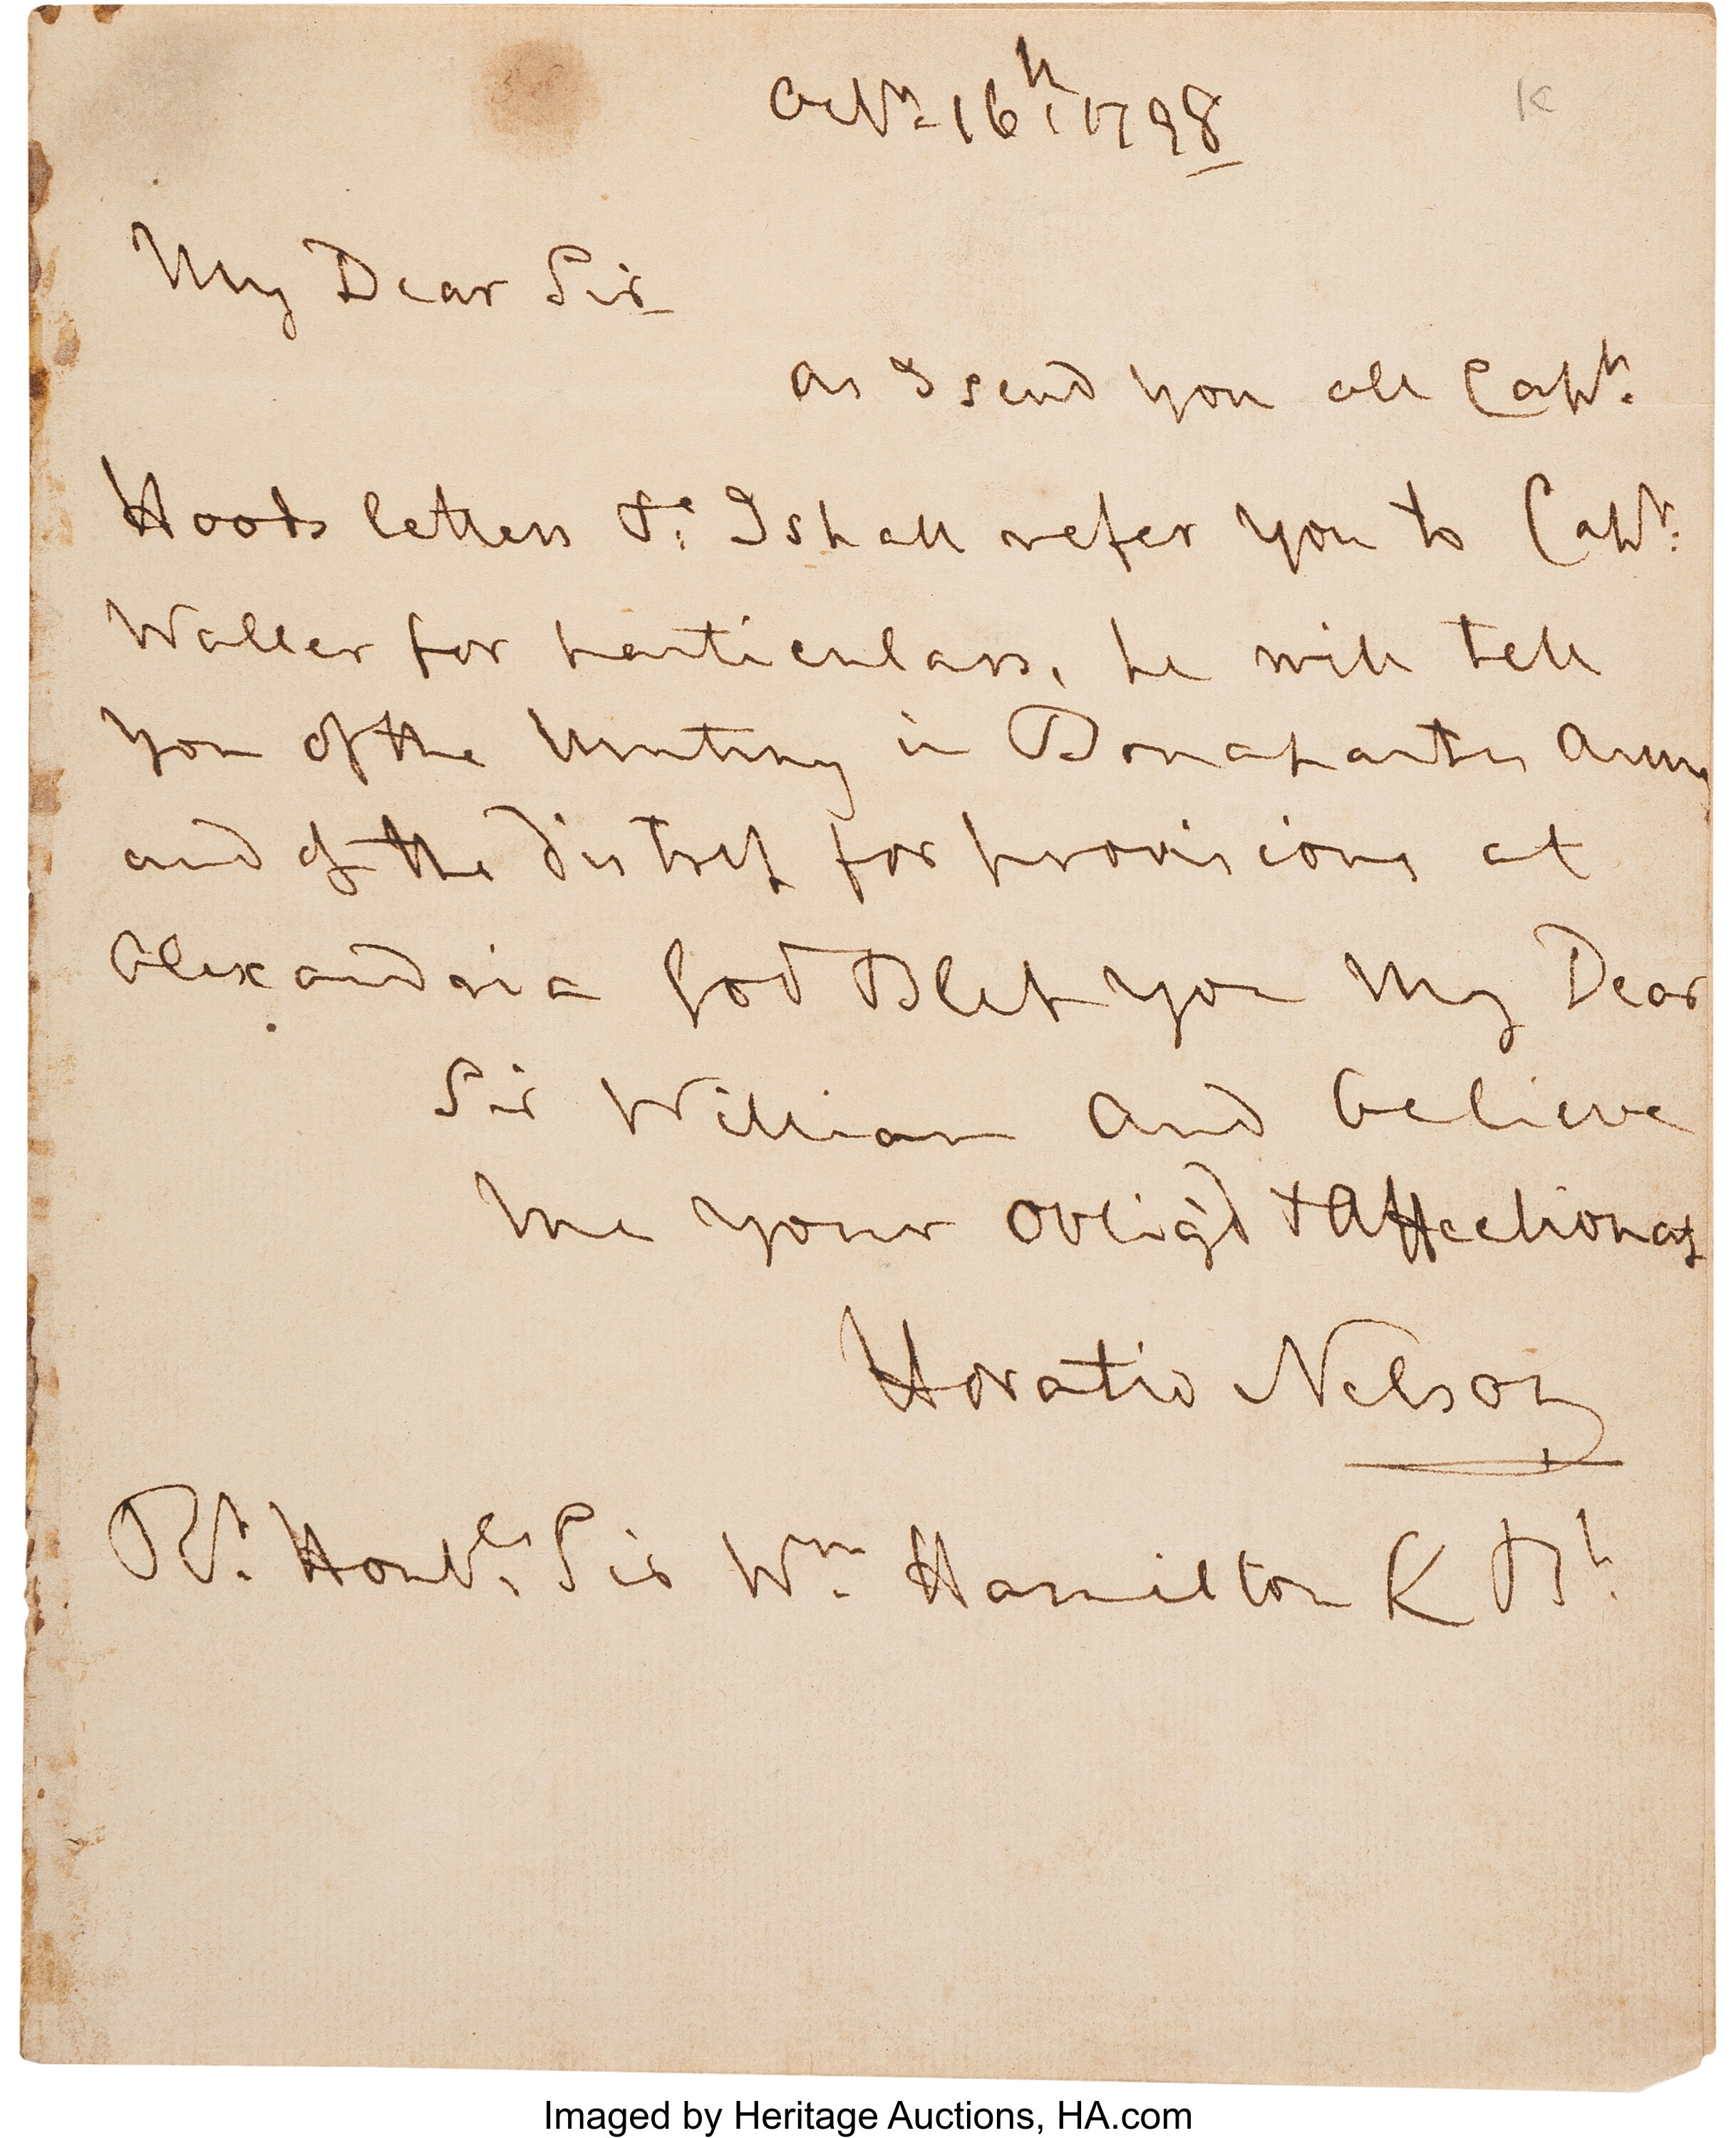 Octr 16th 1798
K
My Dear Sir
as I send you all Capt.
Hoods letters &c. I shall refer you to Capt.
Waller for particulars, he will tell
you of the Mutiny in Bonapartes Army
and of the distress for provisions at
Alexandria God Bless you My Dear
Sir William and believe
me your Oblig'd & Affectionate
Horatio Nelson
Rt. Honble. Sir Wm. Hamilton K Bt.
Imaged by Heritage Auctions, HA.com